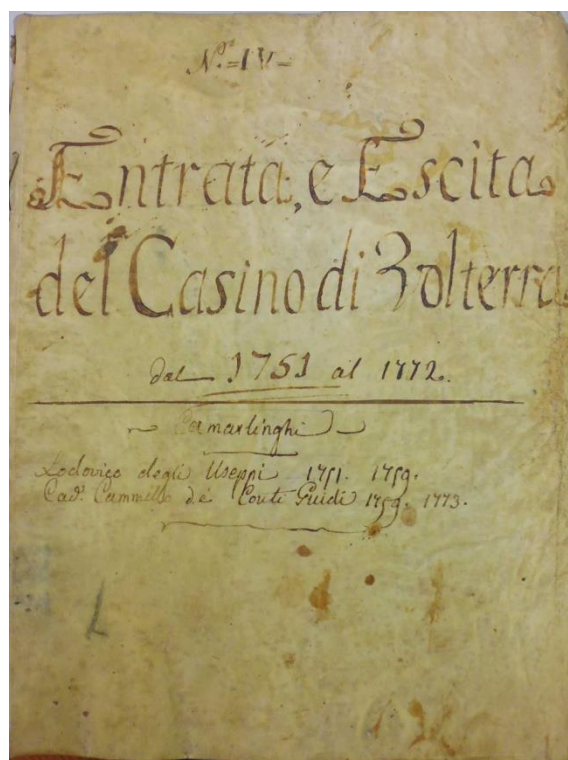 N.º = IV =
Entrata, e Escita
del Casino di Volterra
dal 1751 al 1772.
Camarlinghi
Lodovico degli Useppi 1751. 1759.
Cav.e Cammillo de Conti Guidi 1759. 1773.